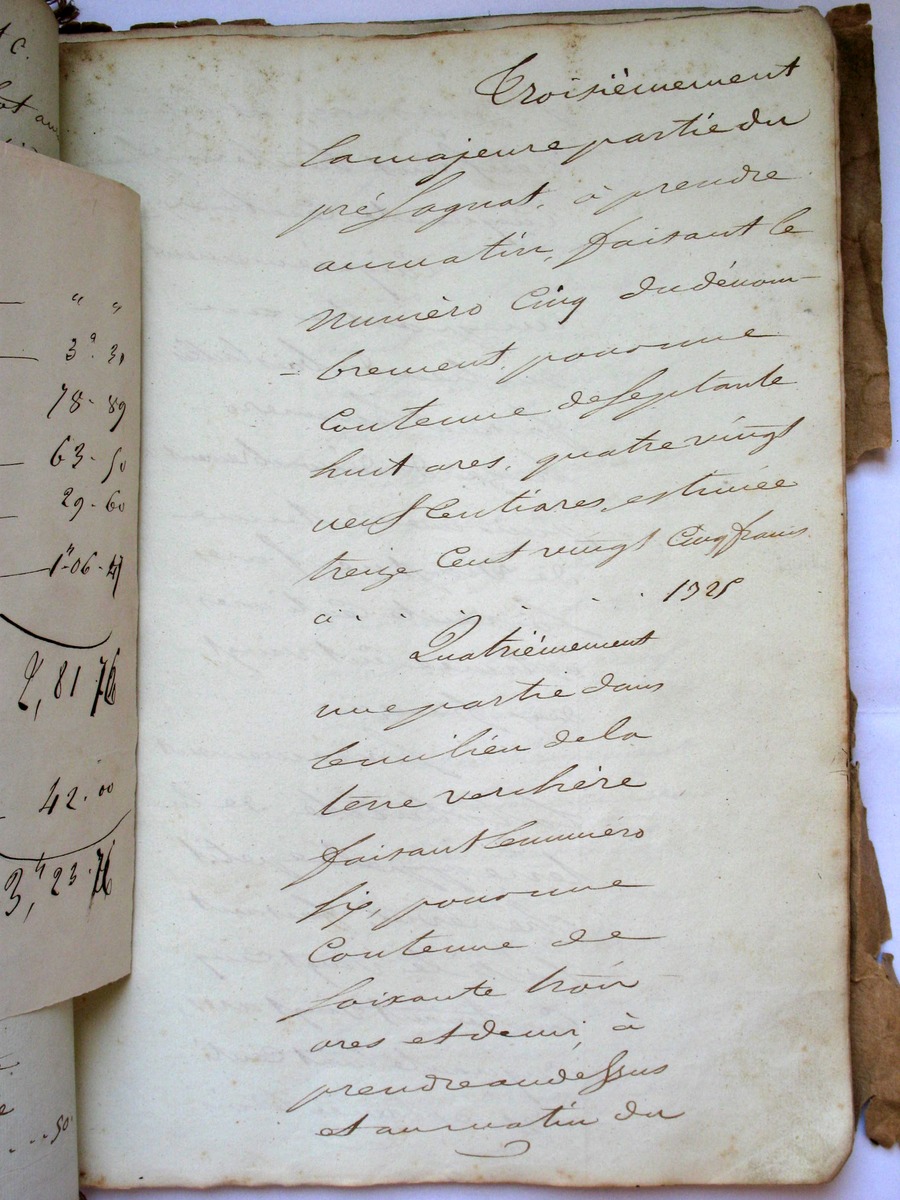 t C.
" "
3ª. 30
78. 89
63. 50
29. 60
1"06. 47
2, 81 76
42. 00
3," 23. 76
. . . 50
Troisièmement
la majeure partie du
pré Sagnat, à prendre
au matin, faisant le
Numéro Cinq du dénom-
- brement, pour une
Contenue de Septante
huit ares, quatre vingt
neuf Centiares, estimée
treize Cent vingt Cinq francs
ci . . . . . . 1325
Quatrièmement
une partie dans
le milieu de la
terre verchère
faisant le numéro
Six, pour une
Contenue de
Soixante trois
ares et demi, à
prendre au dessus
et au matin du